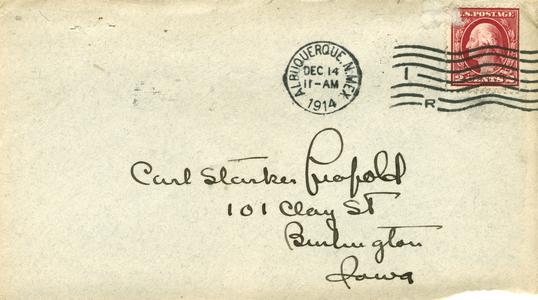 U.S. POSTAGE
ALBUQUERQUE, N. MEX.
DEC 14
11-AM
1914
I
R
2 CENTS 2
Carl Starker Leopold
101 Clay St
Burlington
Iowa